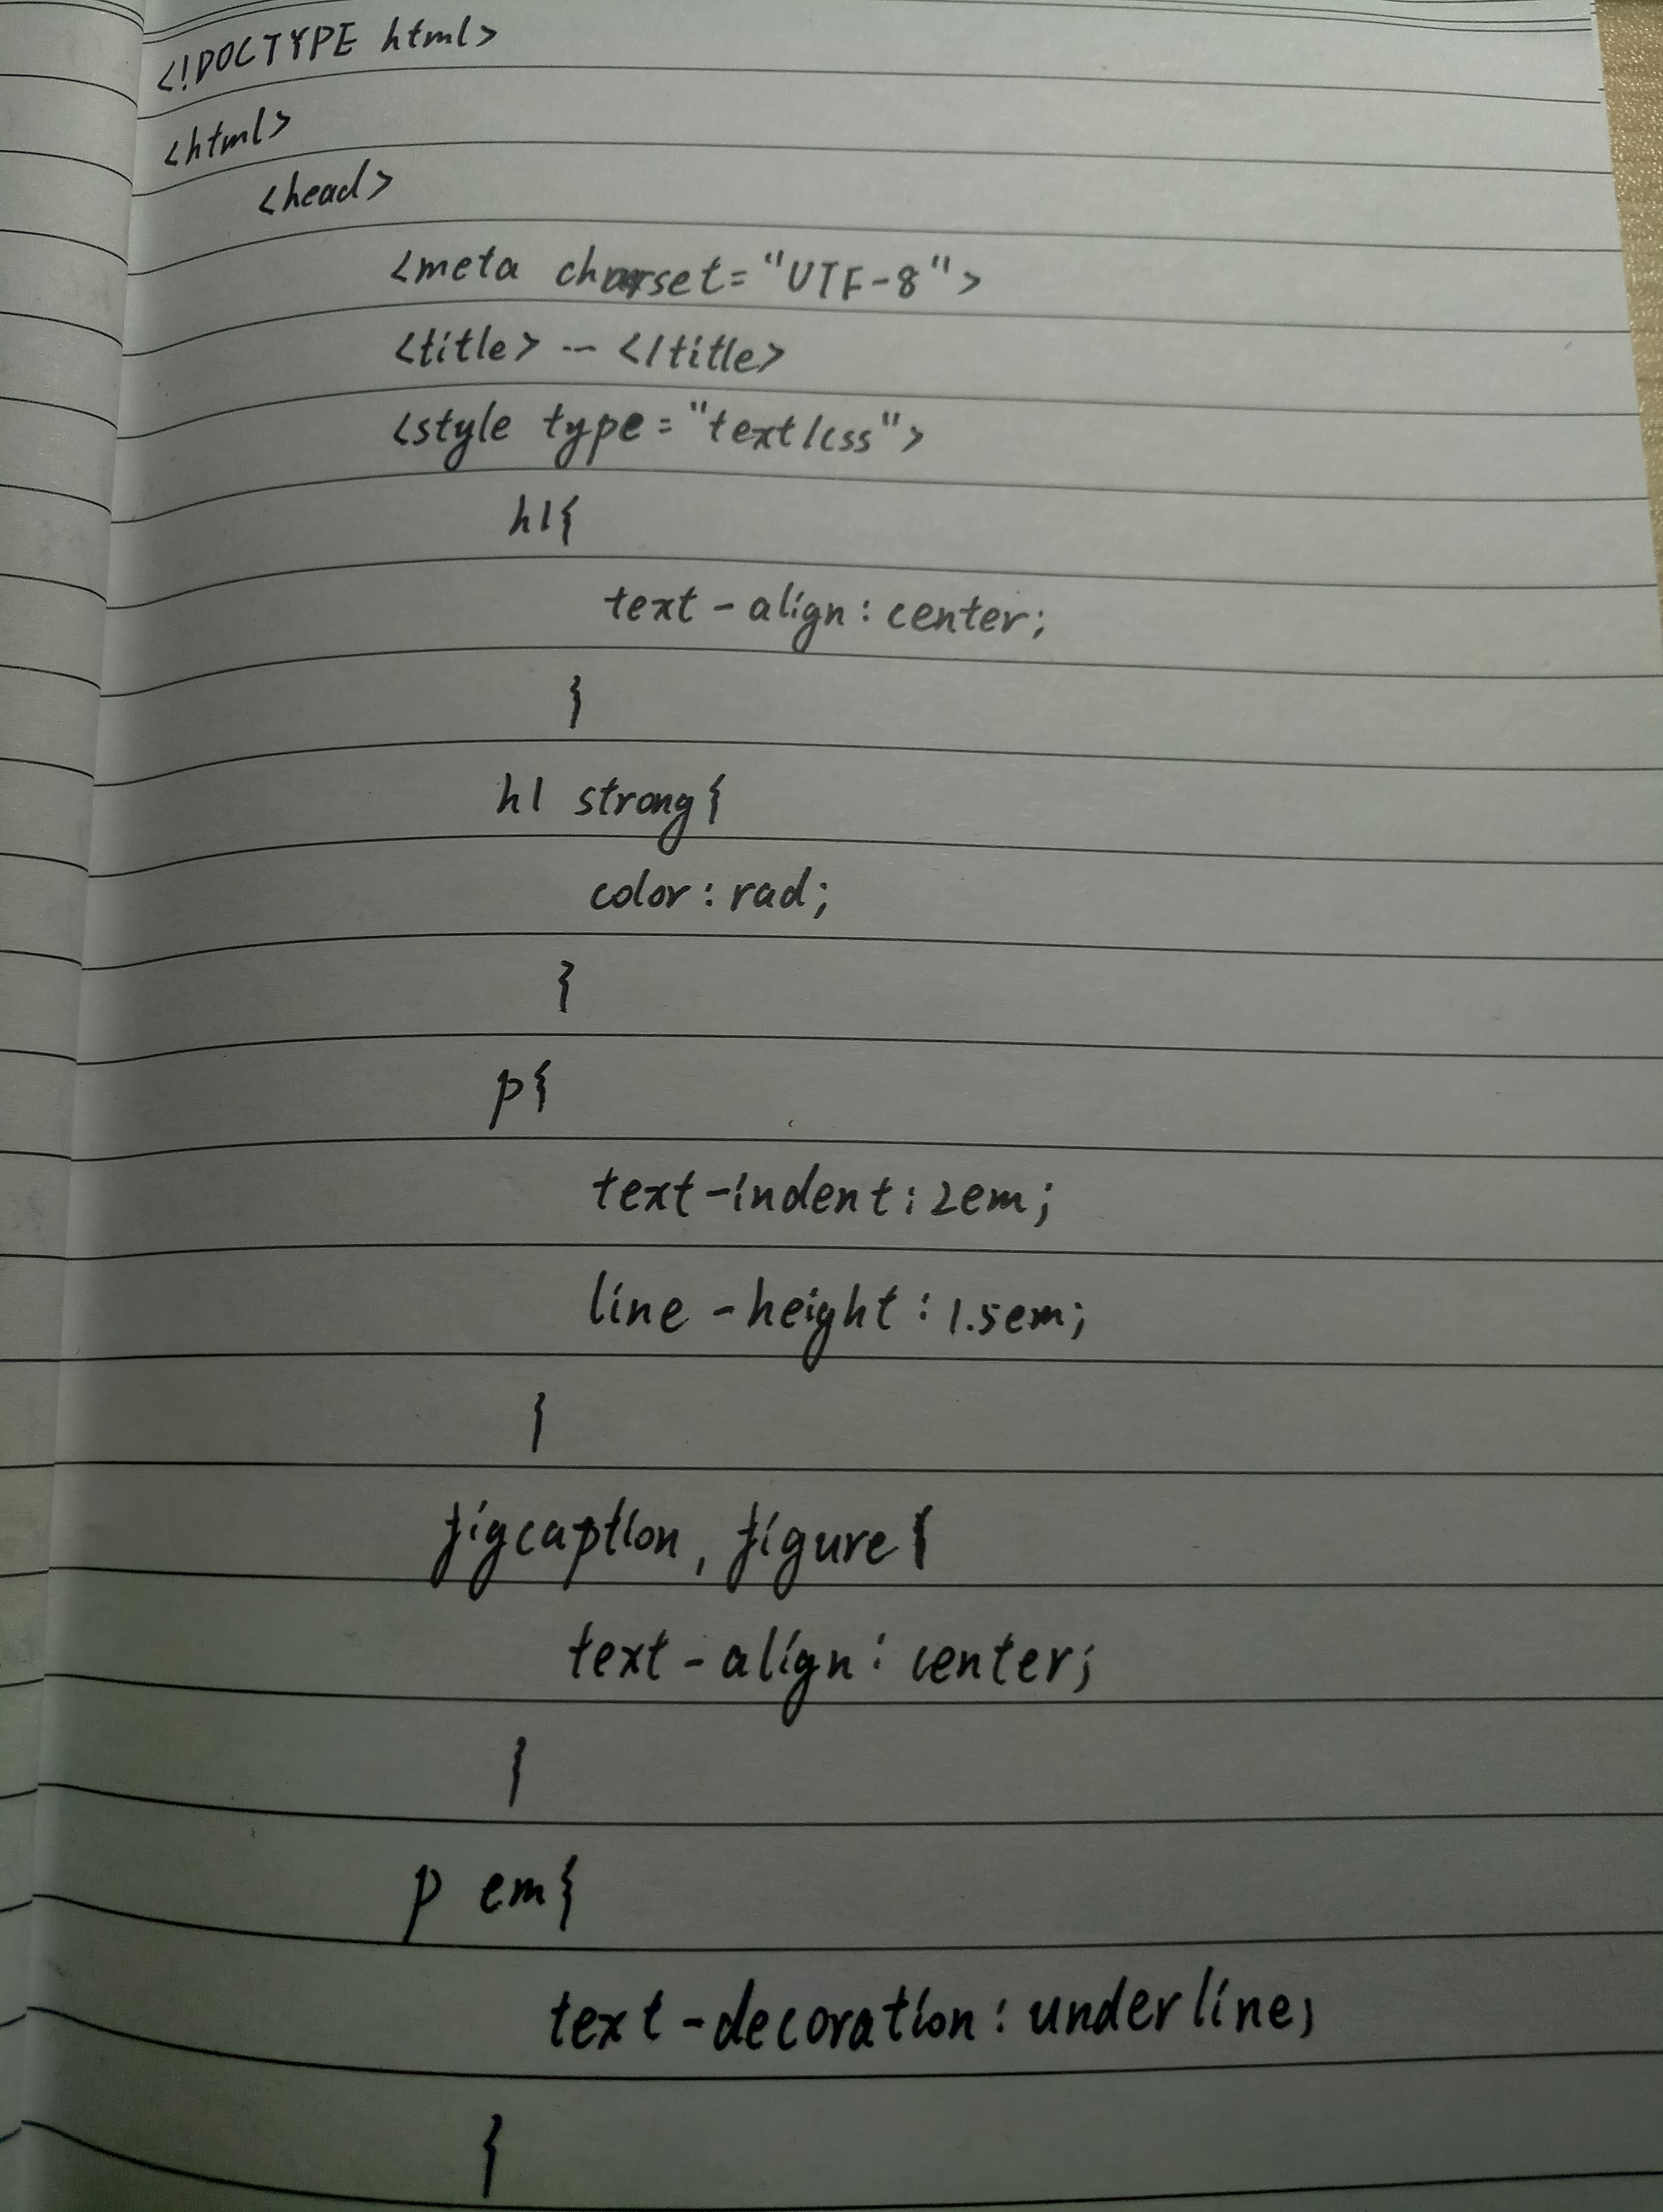 <!DOCTYPE html>
<html>
<head>
<meta charset="UTF-8">
<title> … </title>
<style type="text/css">
h1{
text-align:center;
}
h1 strong{
color:rad;
}
p{
text-indent:2em;
line-height:1.5em;
}
figcaption, figure{
text-align:center;
}
p em{
text-decoration:underline;
}